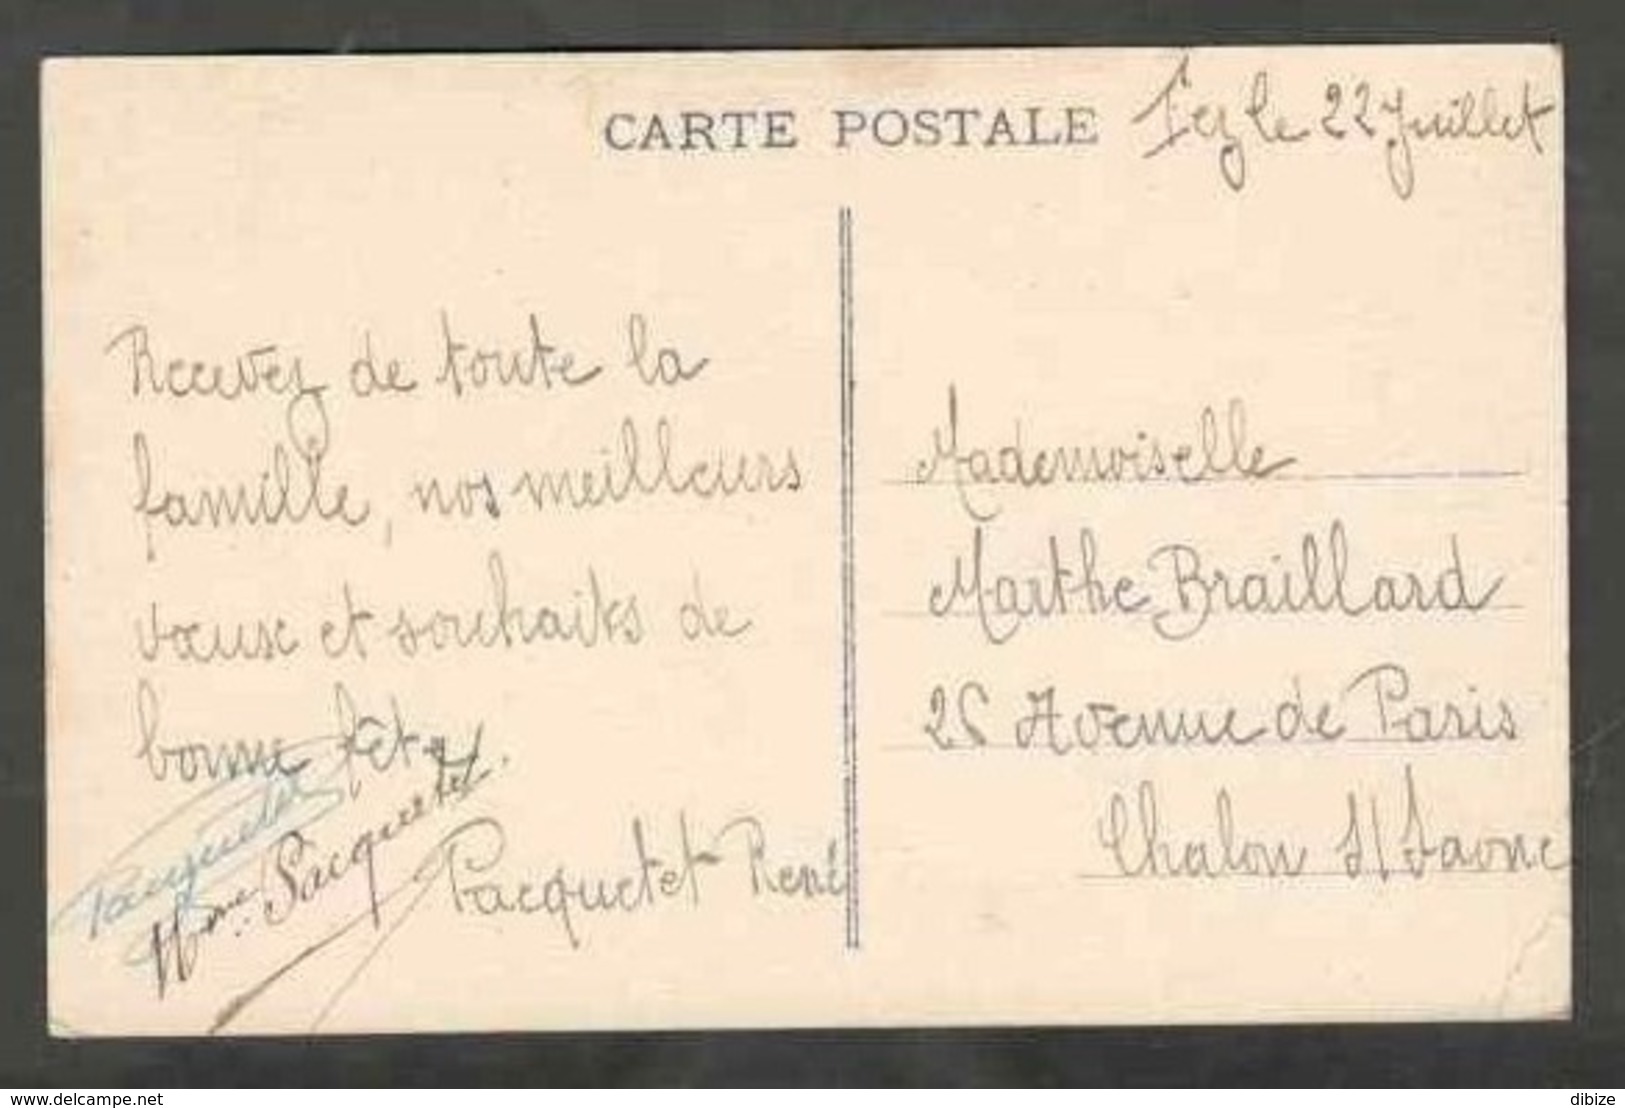 CARTE POSTALE
Fez le 22 Juillet
Recevez de toute la
famille, nos meilleurs
vœux et souhaits de
bonne fête.
Pacquetet
Mme Pacquetet
Pacquetet René
Mademoiselle
Marthe Braillard
25 Avenue de Paris
Chalon s/ Saone
www.delcampe.net
dibize